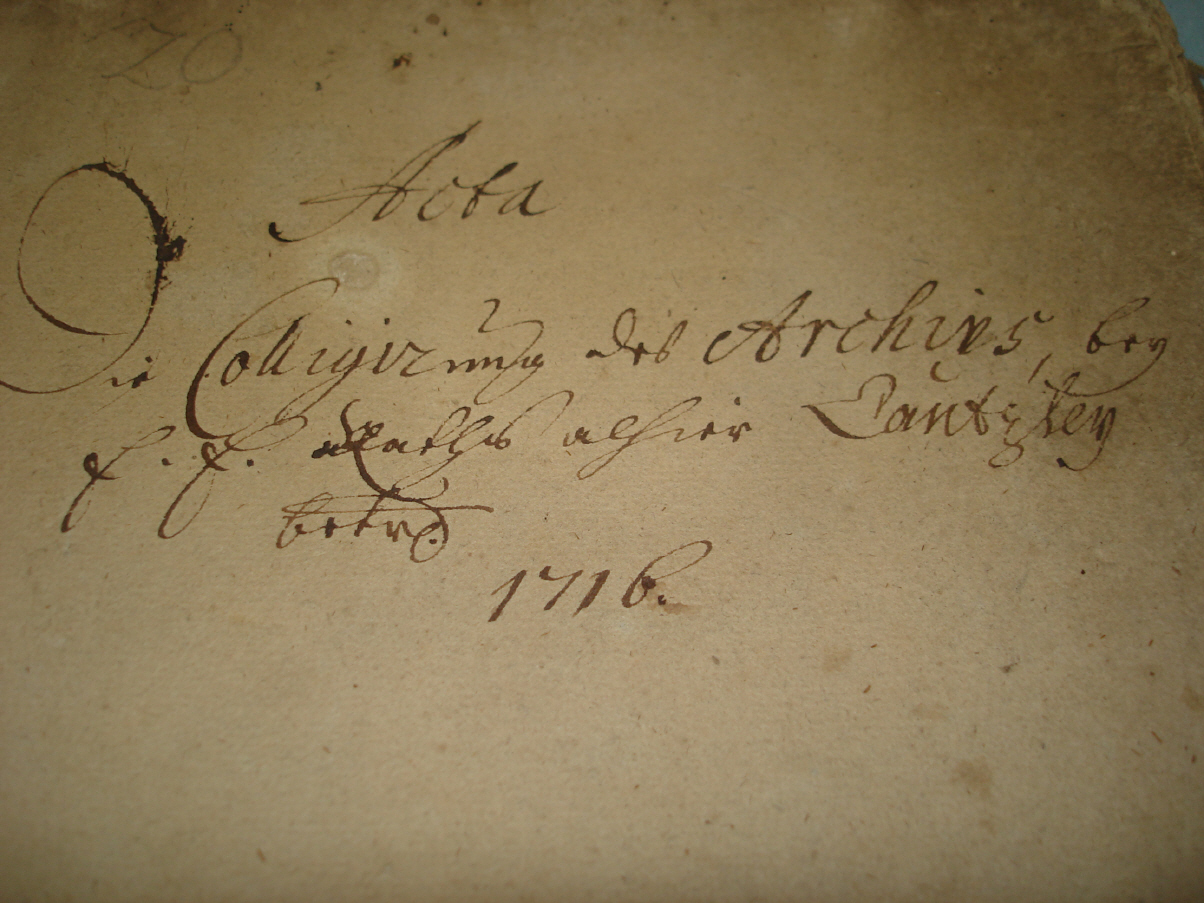 Acta
Die Colligirung des Archivs, bey
E. E. Raths alhier Cantzley
betrd.
1716.